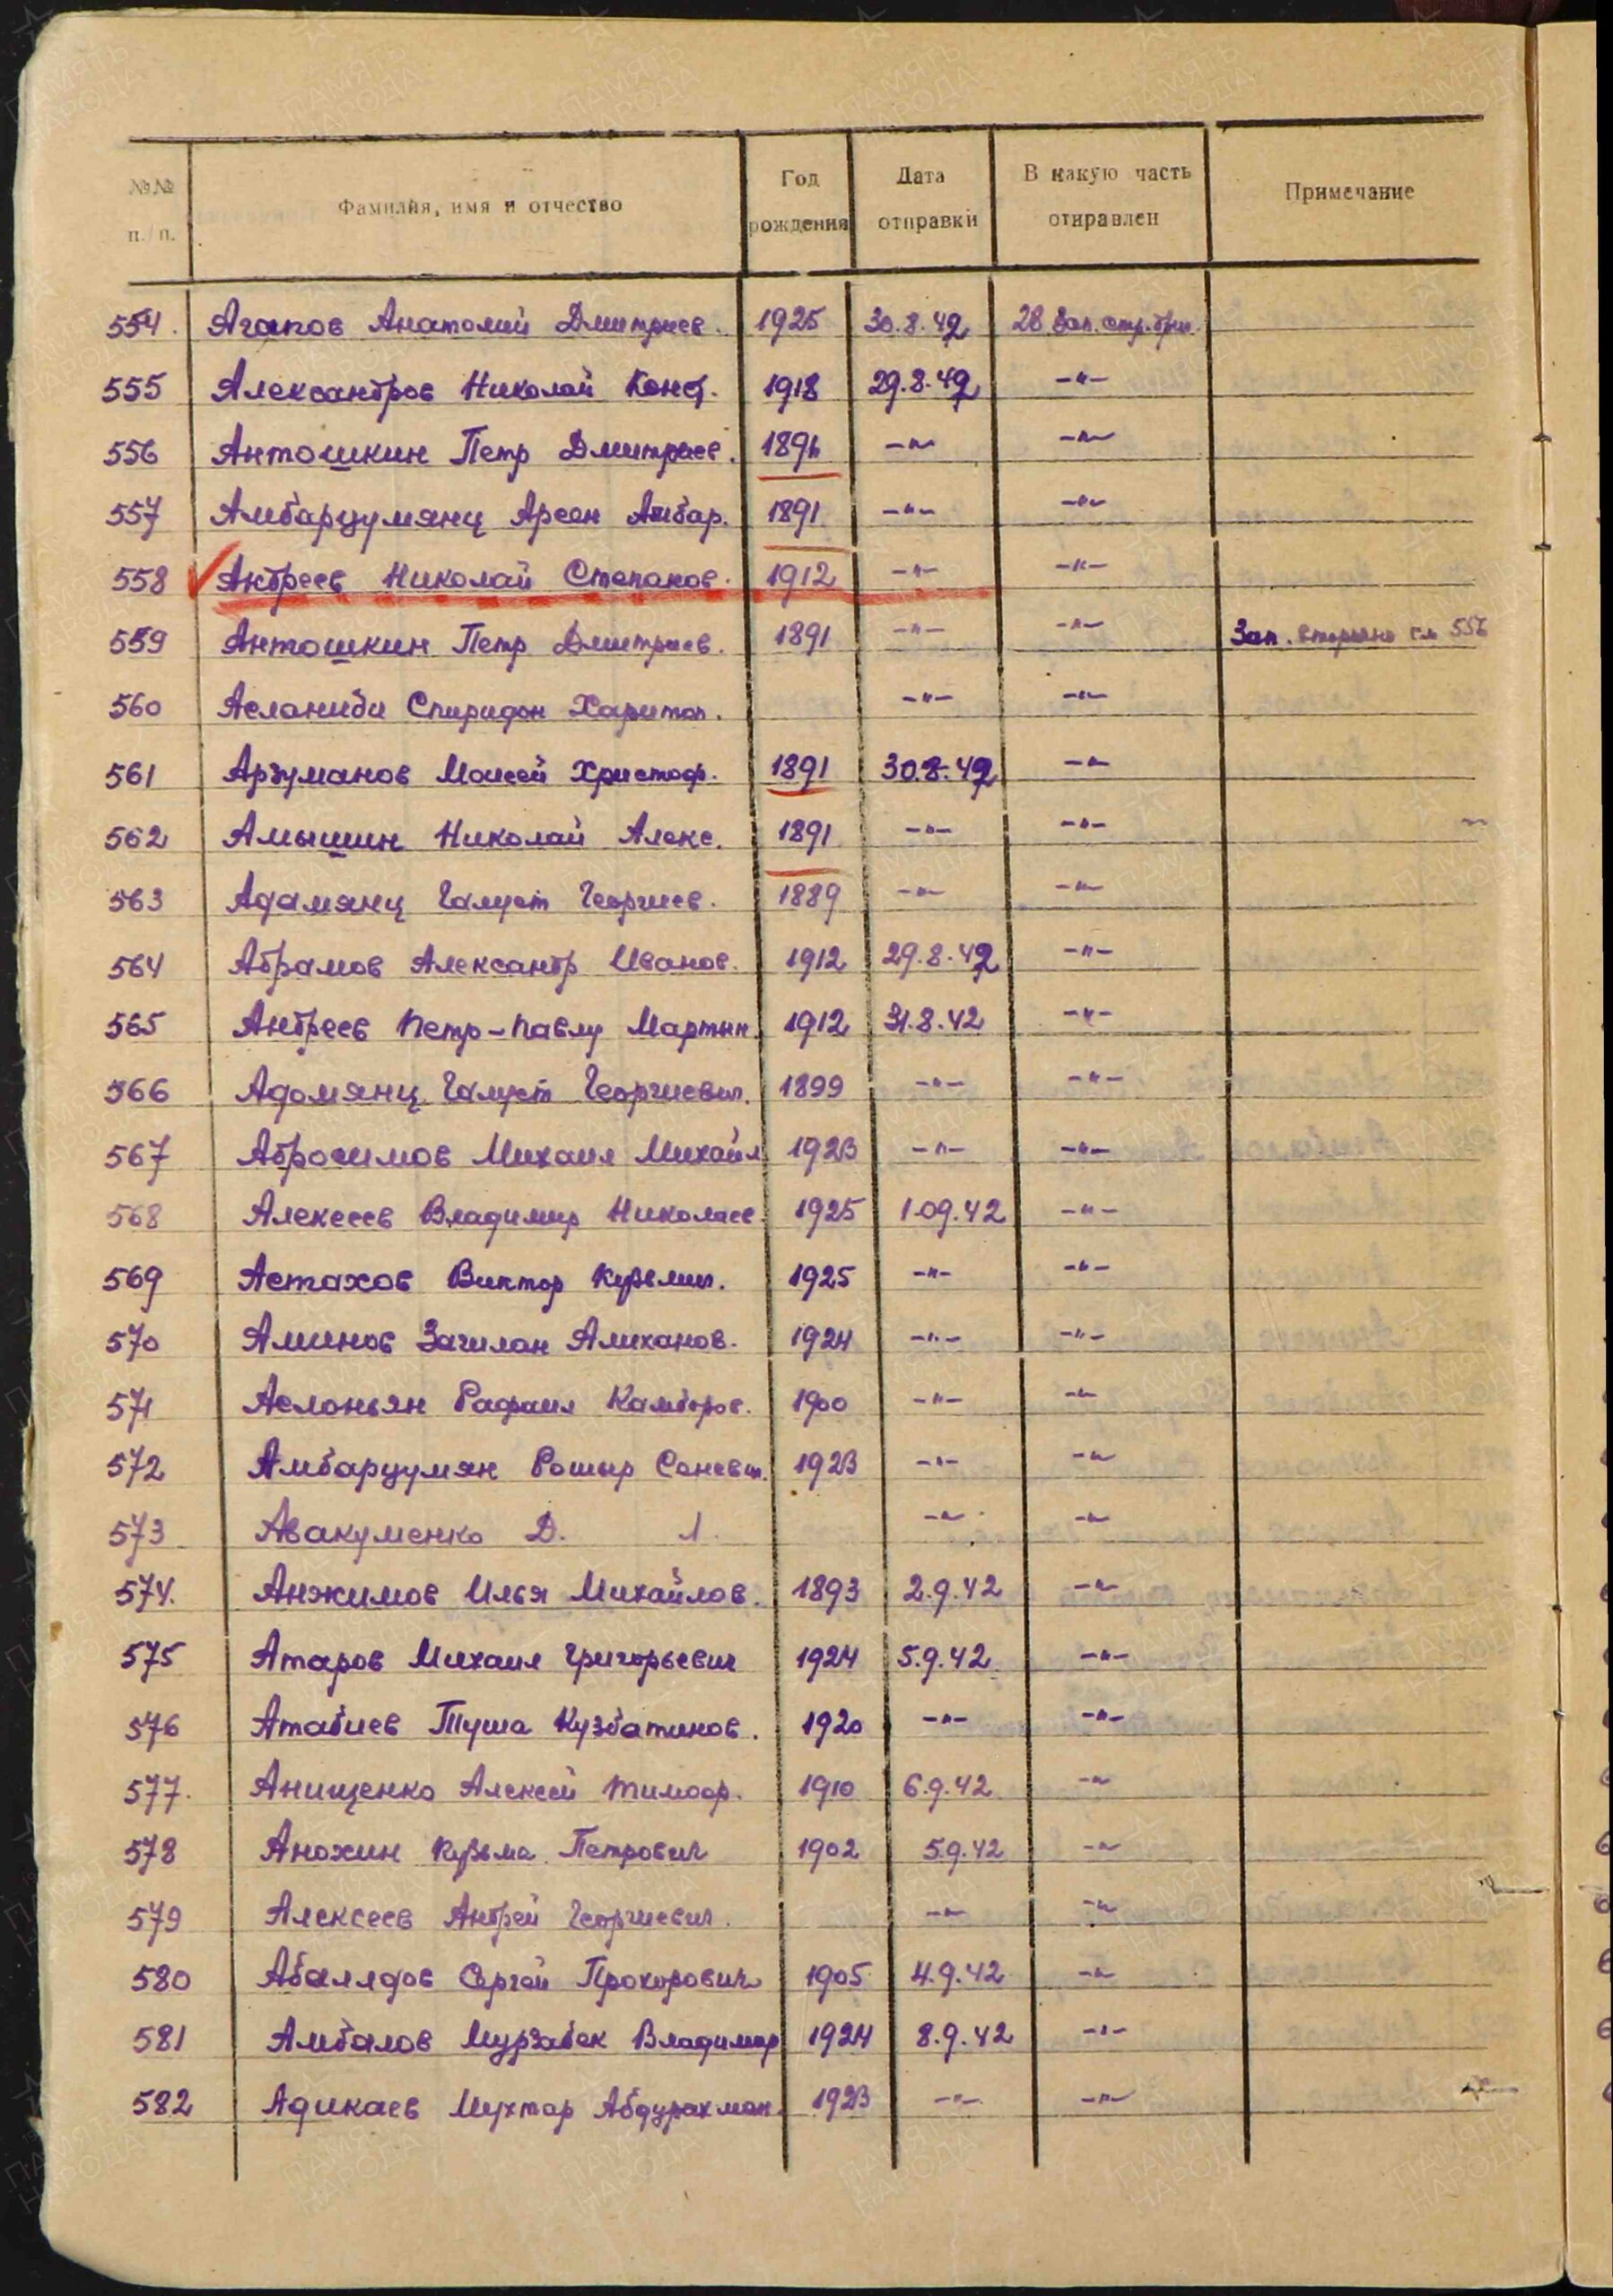 №№ п./п. Фамилия, имя и отчество Год рождения Дата отправки В какую часть отправлен Примечание
554. Агапов Анатолий Дмитриев. 1925 30.8.42 28 Зап. стр. бриг.
555 Александров Николай Конст. 1918 29.8.42 -"-
556 Антошкин Петр Дмитриев. 1891 -"- -"-
557 Амбарцумянц Арсен Амбар. 1891 -"- -"-
558 Андреев Николай Степанов. 1912 -"- -"-
559 Антошкин Петр Дмитриев. 1891 -"- -"- Зап. вторично см 556
560 Асланиди Спиридон Харитон. -"- -"-
561 Арзуманов Моисей Христоф. 1891 30.8.42 -"-
562 Амышин Николай Алекс. 1891 -"- -"-
563 Адамянц Галуст Георгиев. 1889 -"- -"-
564 Абрамов Александр Иванов. 1912 29.8.42 -"-
565 Андреев Петр-Павлу Мартын. 1912 31.8.42 -"-
566 Адомянц Галуст Георгиевич. 1899 -"- -"-
567 Абросимов Михаил Михайл 1923 -"- -"-
568 Алексеев Владимир Николаев. 1925 1.09.42 -"-
569 Астахов Виктор Кузьмич. 1925 -"- -"-
570 Аминов Загилан Алиханов. 1924 -"- -"-
571 Аслоньян Рафаил Камборов. 1900 -"- -"-
572 Амбарцумян Ромыр Саневич. 1923 -"- -"-
573 Авакуменко Д. Л. -"- -"-
574. Анжимов Илья Михайлов. 1893 2.9.42 -"-
575 Атаров Михаил Григорьевич 1924 5.9.42 -"-
576 Атабиев Туша Кузбатинов. 1920 -"- -"-
577. Анищенко Алексей Тимоф. 1910 6.9.42 -"-
578 Анохин Кузьма Петрович 1902 5.9.42 -"-
579 Алексеев Андрей Георгиевич. -"- -"-
580 Абалядов Сергей Прохорович 1905 4.9.42 -"-
581 Амбалов Мурзабек Владимир 1924 8.9.42 -"-
582 Адикаев Мухтар Абдурахман. 1923 -"- -"-